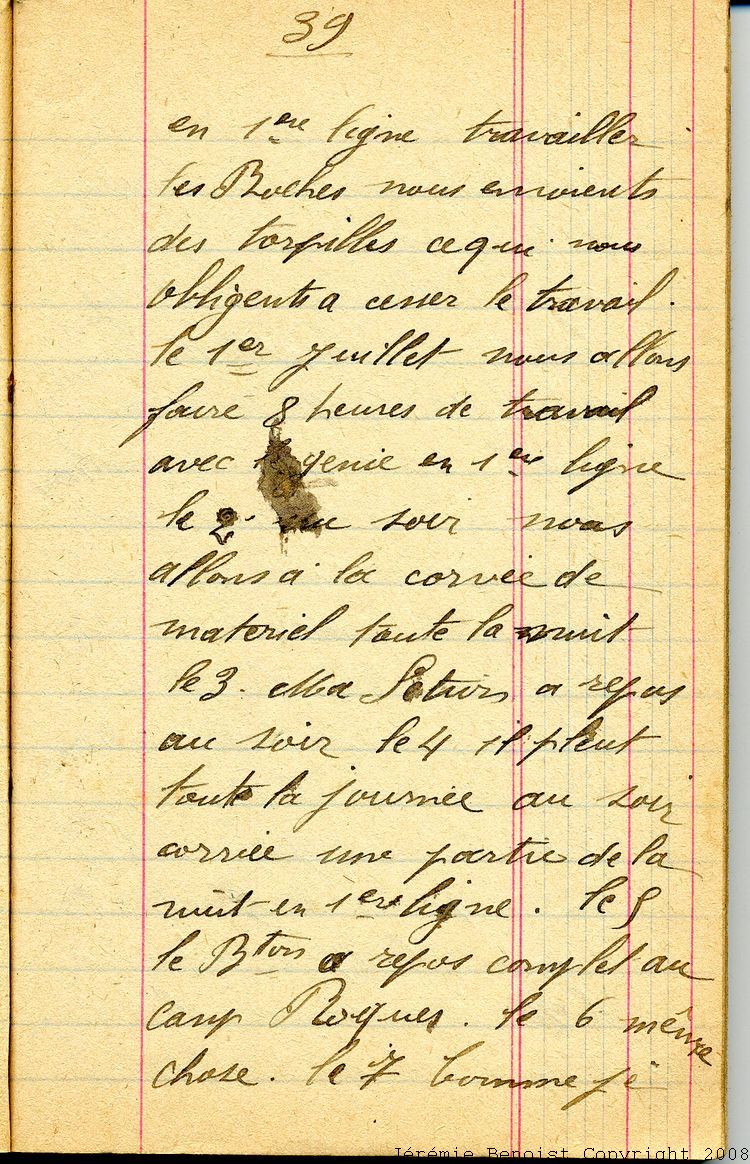 39
en 1ere ligne travailler
les Boches nous envoients
des torpilles ce qui nous
obligents a cesser le travail.
le 1er Juillet nous allons
faire 8 heures de travail
avec genie en 1ere ligne
le 2 au soir nous
allons a la corvée de
materiel toute la nuit
le 3. Ma a repos
au soir le 4 il pleut
toute la journée au soir
corvée une partie de la
nuit en 1ere ligne. le 5
le Bton a repos complet au
camp Roques. le 6 même
chose. le 7 comme je
Jérémie Benoist Copyright 2008